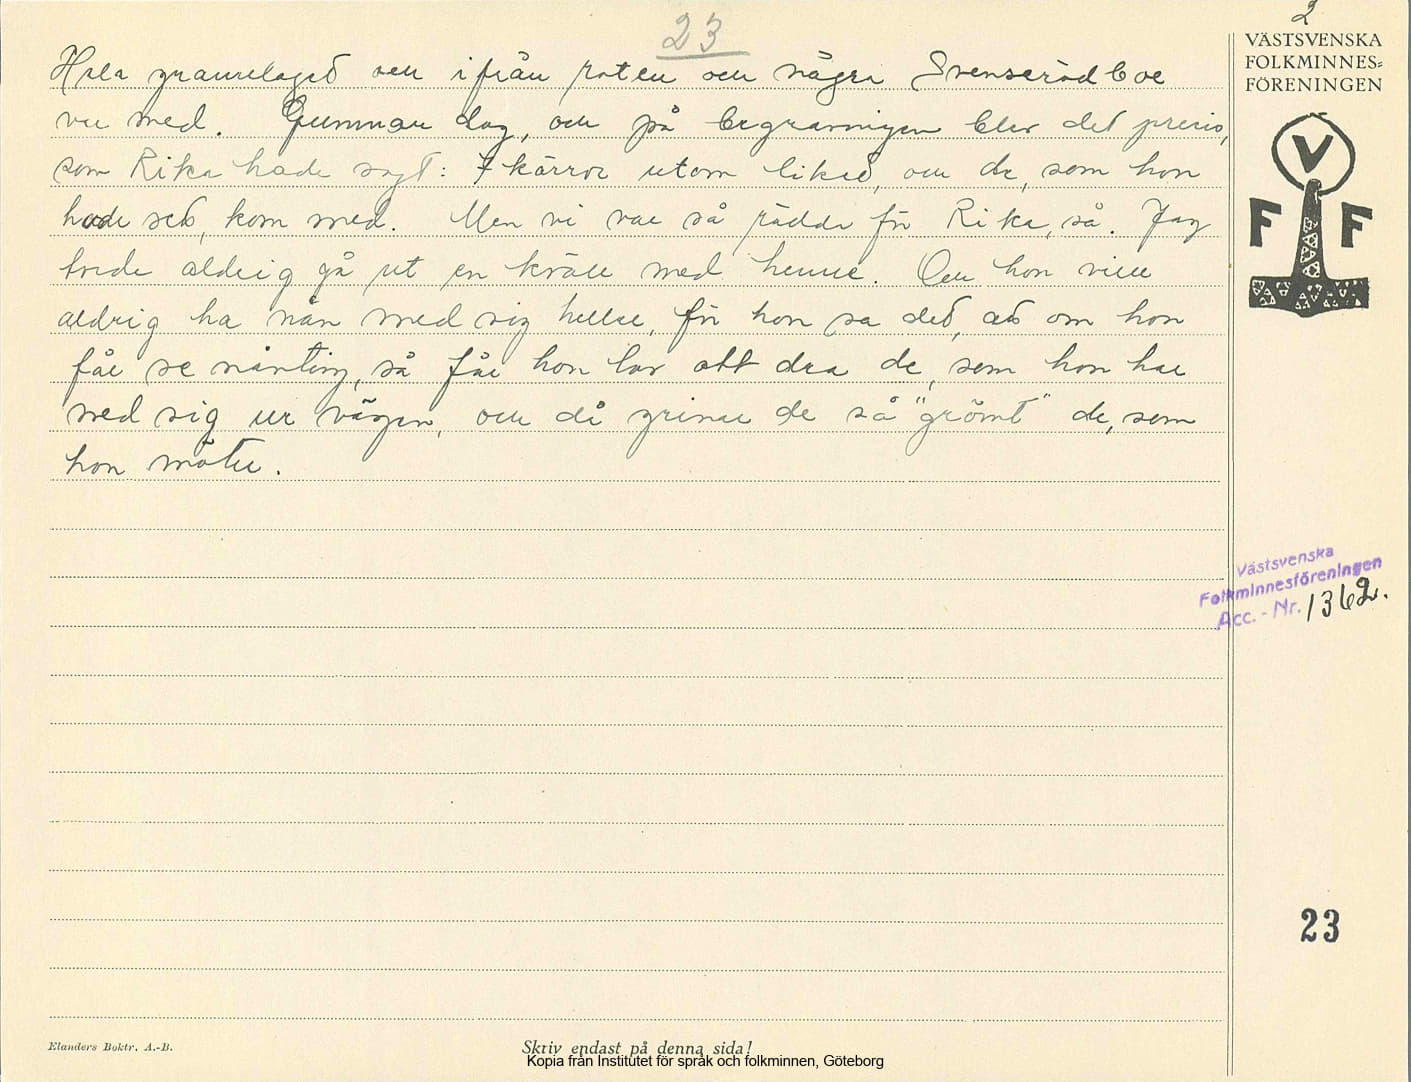 23
2
VÄSTSVENSKA
FOLKMINNES=
FÖRENINGEN
Hela grannelaged veu ifrån roten ocu några Svenserödboe
var med. Gumman dog, ocu på begravningen blev det precis,
som Rika hade sagt: 7 kärror utom liked, ocu de, som hon
hade sed, kom med. Men vi var så rädda för Rika, så. Jag
torde aldrig gå ut en kväll med henne. Ocu hon ville
aldrig ha nån med sig heller, för hon sa ded, ad om hon
får se nånting, så får hon lov att dra de, som hon har
med sig ur vägen, ocu då grinar de så "grömt" de, som
hon möter.
V
F F
Västsvenska
Folkminnesföreningen
Acc. - Nr. 1362.
23
Elanders Boktr. A.-B.
Skriv endast på denna sida!
Kopia från Institutet för språk och folkminnen, Göteborg